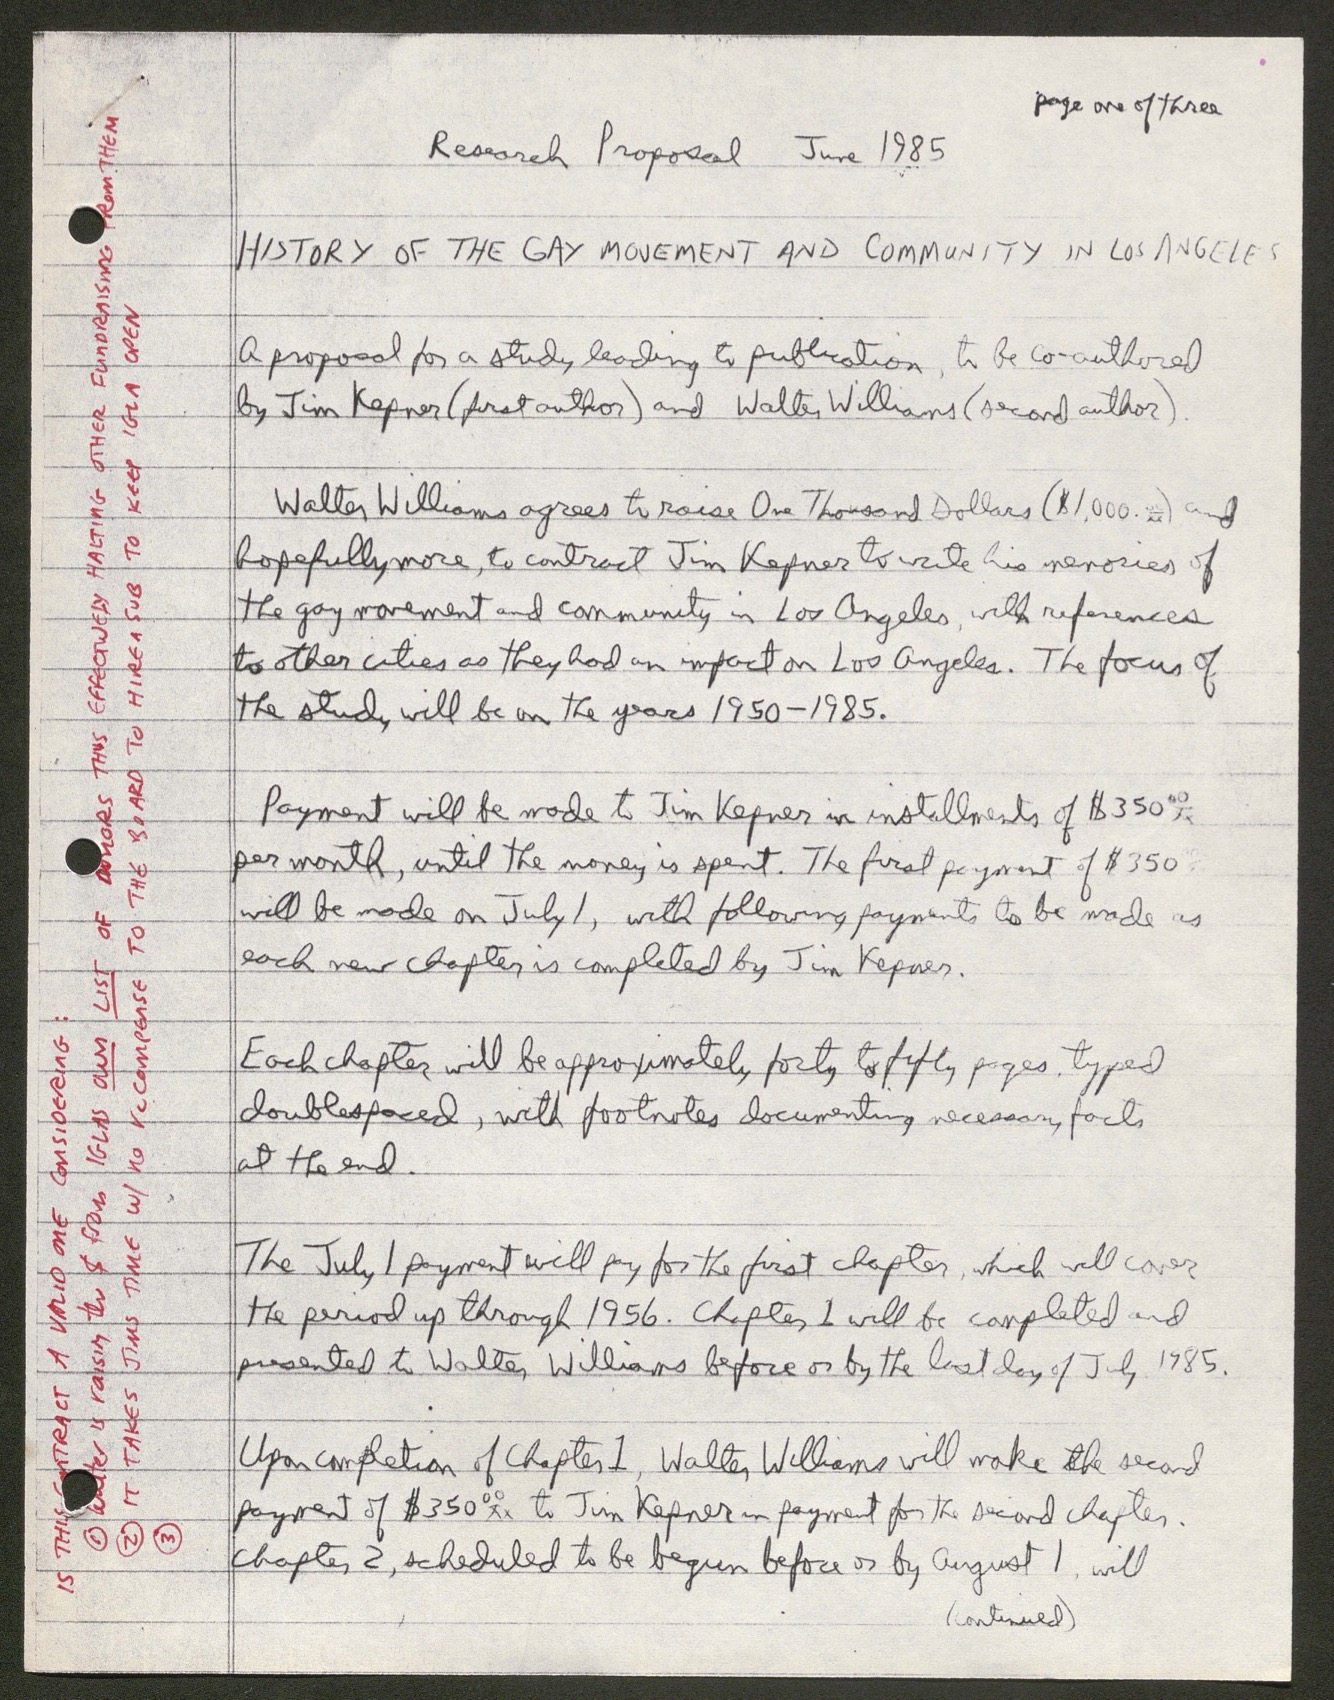 page one of three
Research Proposal June 1985
HISTORY OF THE GAY MOVEMENT AND COMMUNITY IN LOS ANGELES
A proposal for a study leading to publication, to be co-authored
by Jim Kepner (first author) and Walter Williams (second author).
Walter Williams agrees to raise One Thousand Dollars ($1,000.00/xx) and
hopefully more, to contract Jim Kepner to write his memories of
the gay movement and community in Los Angeles, with references
to other cities as they had an impact on Los Angeles. The focus of
the study will be on the years 1950-1985.
Payment will be made to Jim Kepner in installments of $350 00/xx
per month, until the money is spent. The first payment of $350
will be made on July 1, with following payments to be made as
each new chapter is completed by Jim Kepner.
Each chapter will be approximately forty to fifty pages, typed
doublespaced, with footnotes documenting necessary facts
at the end.
The July 1 payment will pay for the first chapter, which will cover
the period up through 1956. Chapter 1 will be completed and
presented to Walter Williams before or by the last day of July 1985.
Upon completion of Chapter 1, Walter Williams will make the second
payment of $350 00/xx to Jim Kepner in payment for the second chapter.
Chapter 2, scheduled to be begun before or by August 1, will
(continued)
IS THIS CONTRACT A VALID ONE CONSIDERING:
① Walter is raising the $ from IGLAS OWN LIST OF DONORS THUS EFFECTIVELY HALTING OTHER FUNDRAISING FROM THEM
② IT TAKES JIMS TIME W/ NO RECOMPENSE TO THE BOARD TO HIRE A SUB TO KEEP IGLA OPEN
③